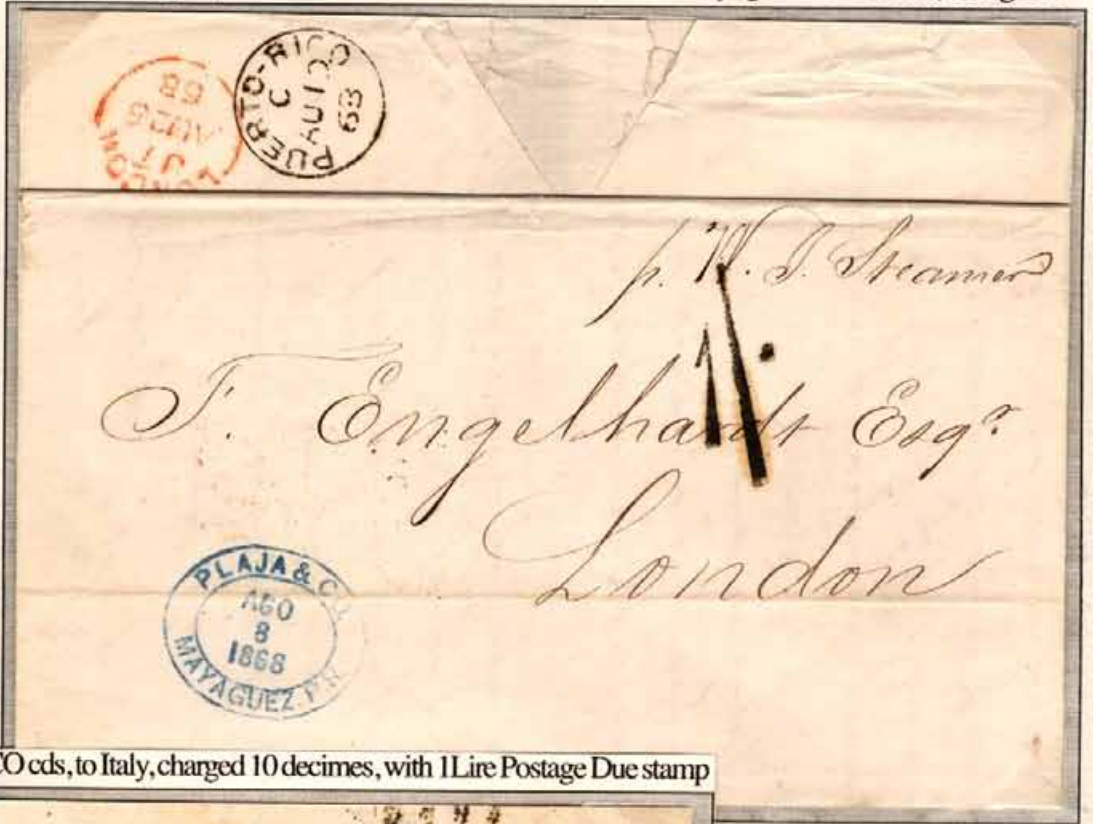 PUERTO-RICO
C
AU
68
LONDON
68
p. W. I. Steamer
F. Engelhardt Esqr.
London
PLAJA & Co.
AGO
8
1868
MAYAGUEZ. P.R.
CO cds, to Italy, charged 10 decimes, with 1Lire Postage Due stamp